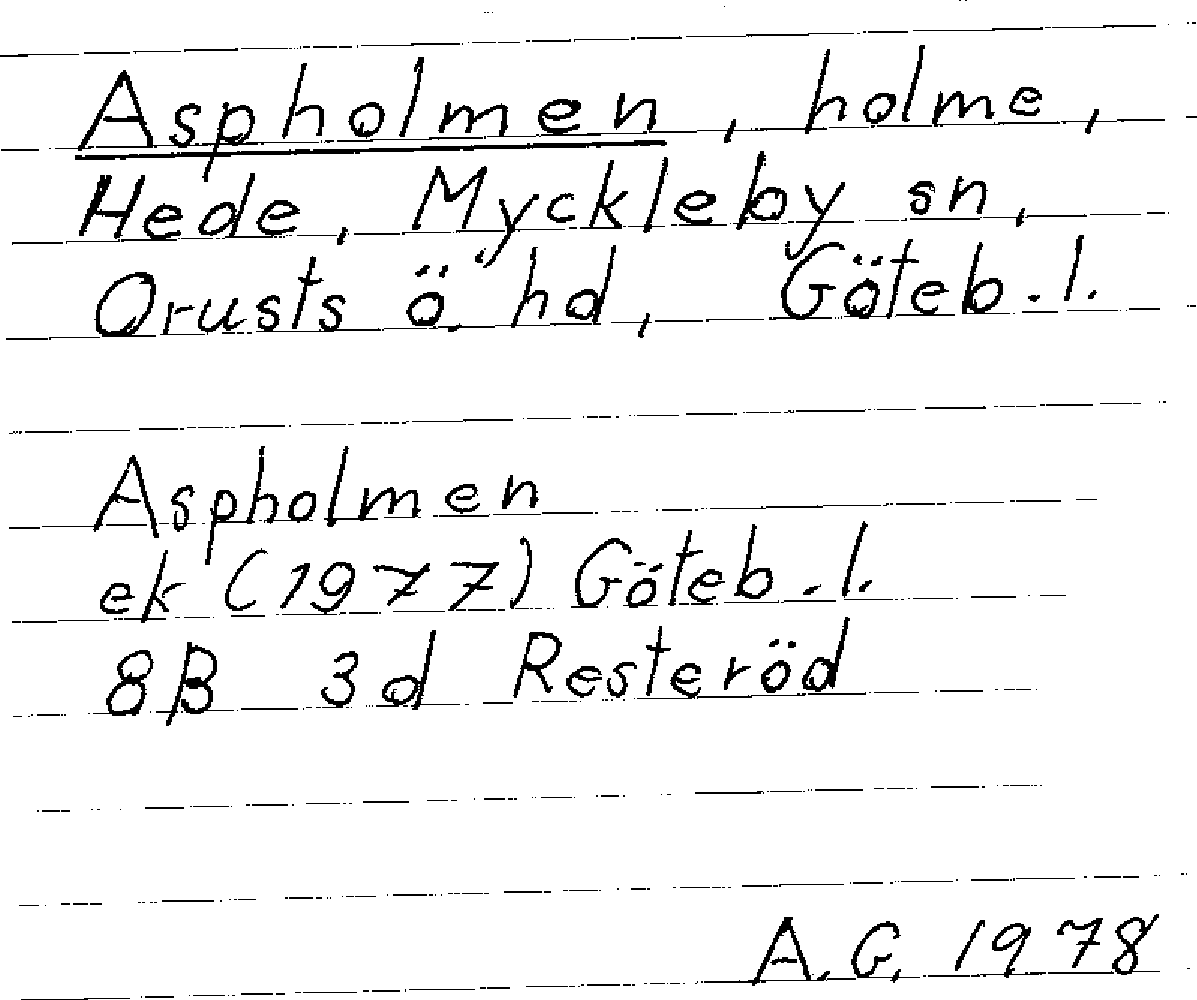 Aspholmen, holme,
Hede, Myckleby sn,
Orusts ö. hd, Göteb. l.
Aspholmen
ek (1977) Göteb. l.
8B 3d Resteröd
A.G. 1978